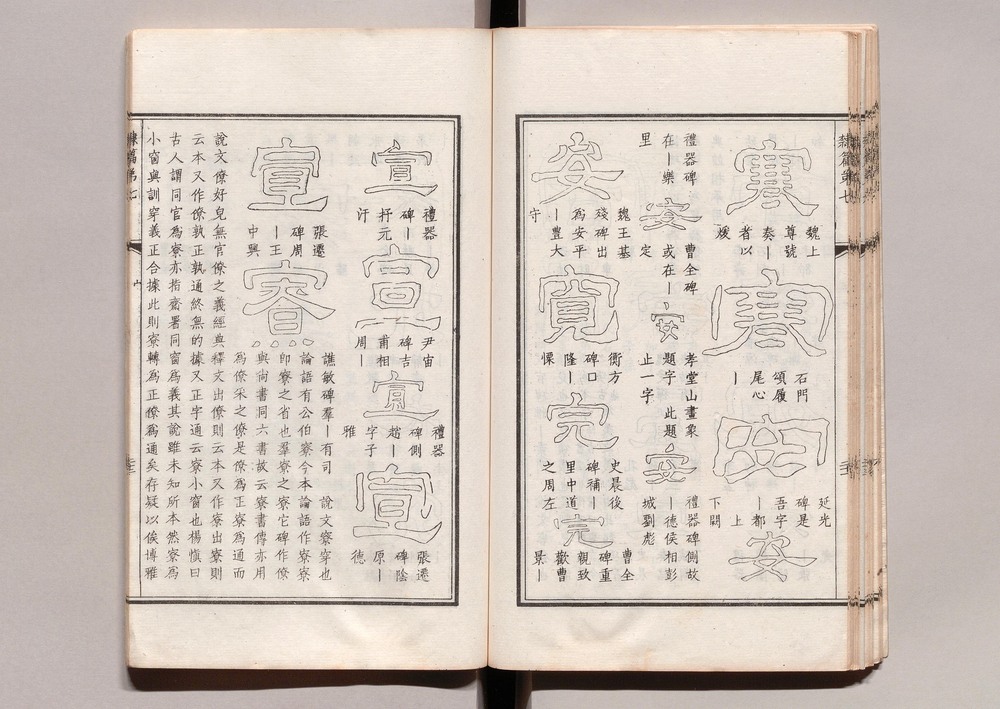 隸篇第七
寒
魏上
尊號
奏｜
者以
煖
寒
石門
頌履
尾心
｜
安
延光
碑是
吾字
｜都
上
下闕
安
禮器碑
在｜樂
里
安
曹全碑
或在｜
定
安
孝堂山畫象
題字 此題
止一字
安
禮器碑側故
｜德侯相彭
城劉彪
安
魏王基
殘碑出
為安平
｜豐大
守
寬
衡方
碑口
隆｜
慄
完
史晨後
碑補｜
里中道
之周左
完
曹全
碑重
親致
歡曹
景｜
宣
禮器
碑｜
抒元
汙
宣
尹宙
碑吉
甫相
周｜
宣
禮器
碑側
趙｜
字子
雅
宣
張遷
碑陰
原｜
德
宣
張遷
碑周
｜王
中興
寮
譙敏碑羣｜有司 說文寮穿也
論語有公伯寮今本論語作寮寮
即寮之省也羣寮之寮它碑作僚
與尚書同六書故云寮書傳亦用
為僚采之僚是僚為正寮為通而
說文僚好皃無官僚之義經典釋文出僚則云本又作寮出寮則
云本又作僚孰正孰通終無的據又正字通云寮小窗也楊愼曰
古人謂同官為寮亦指齋署同窗為義其說雖未知所本然寮為
小窗與訓穿義正合據此則寮轉為正僚為通矣存疑以俟博雅
隸篇第七
宀